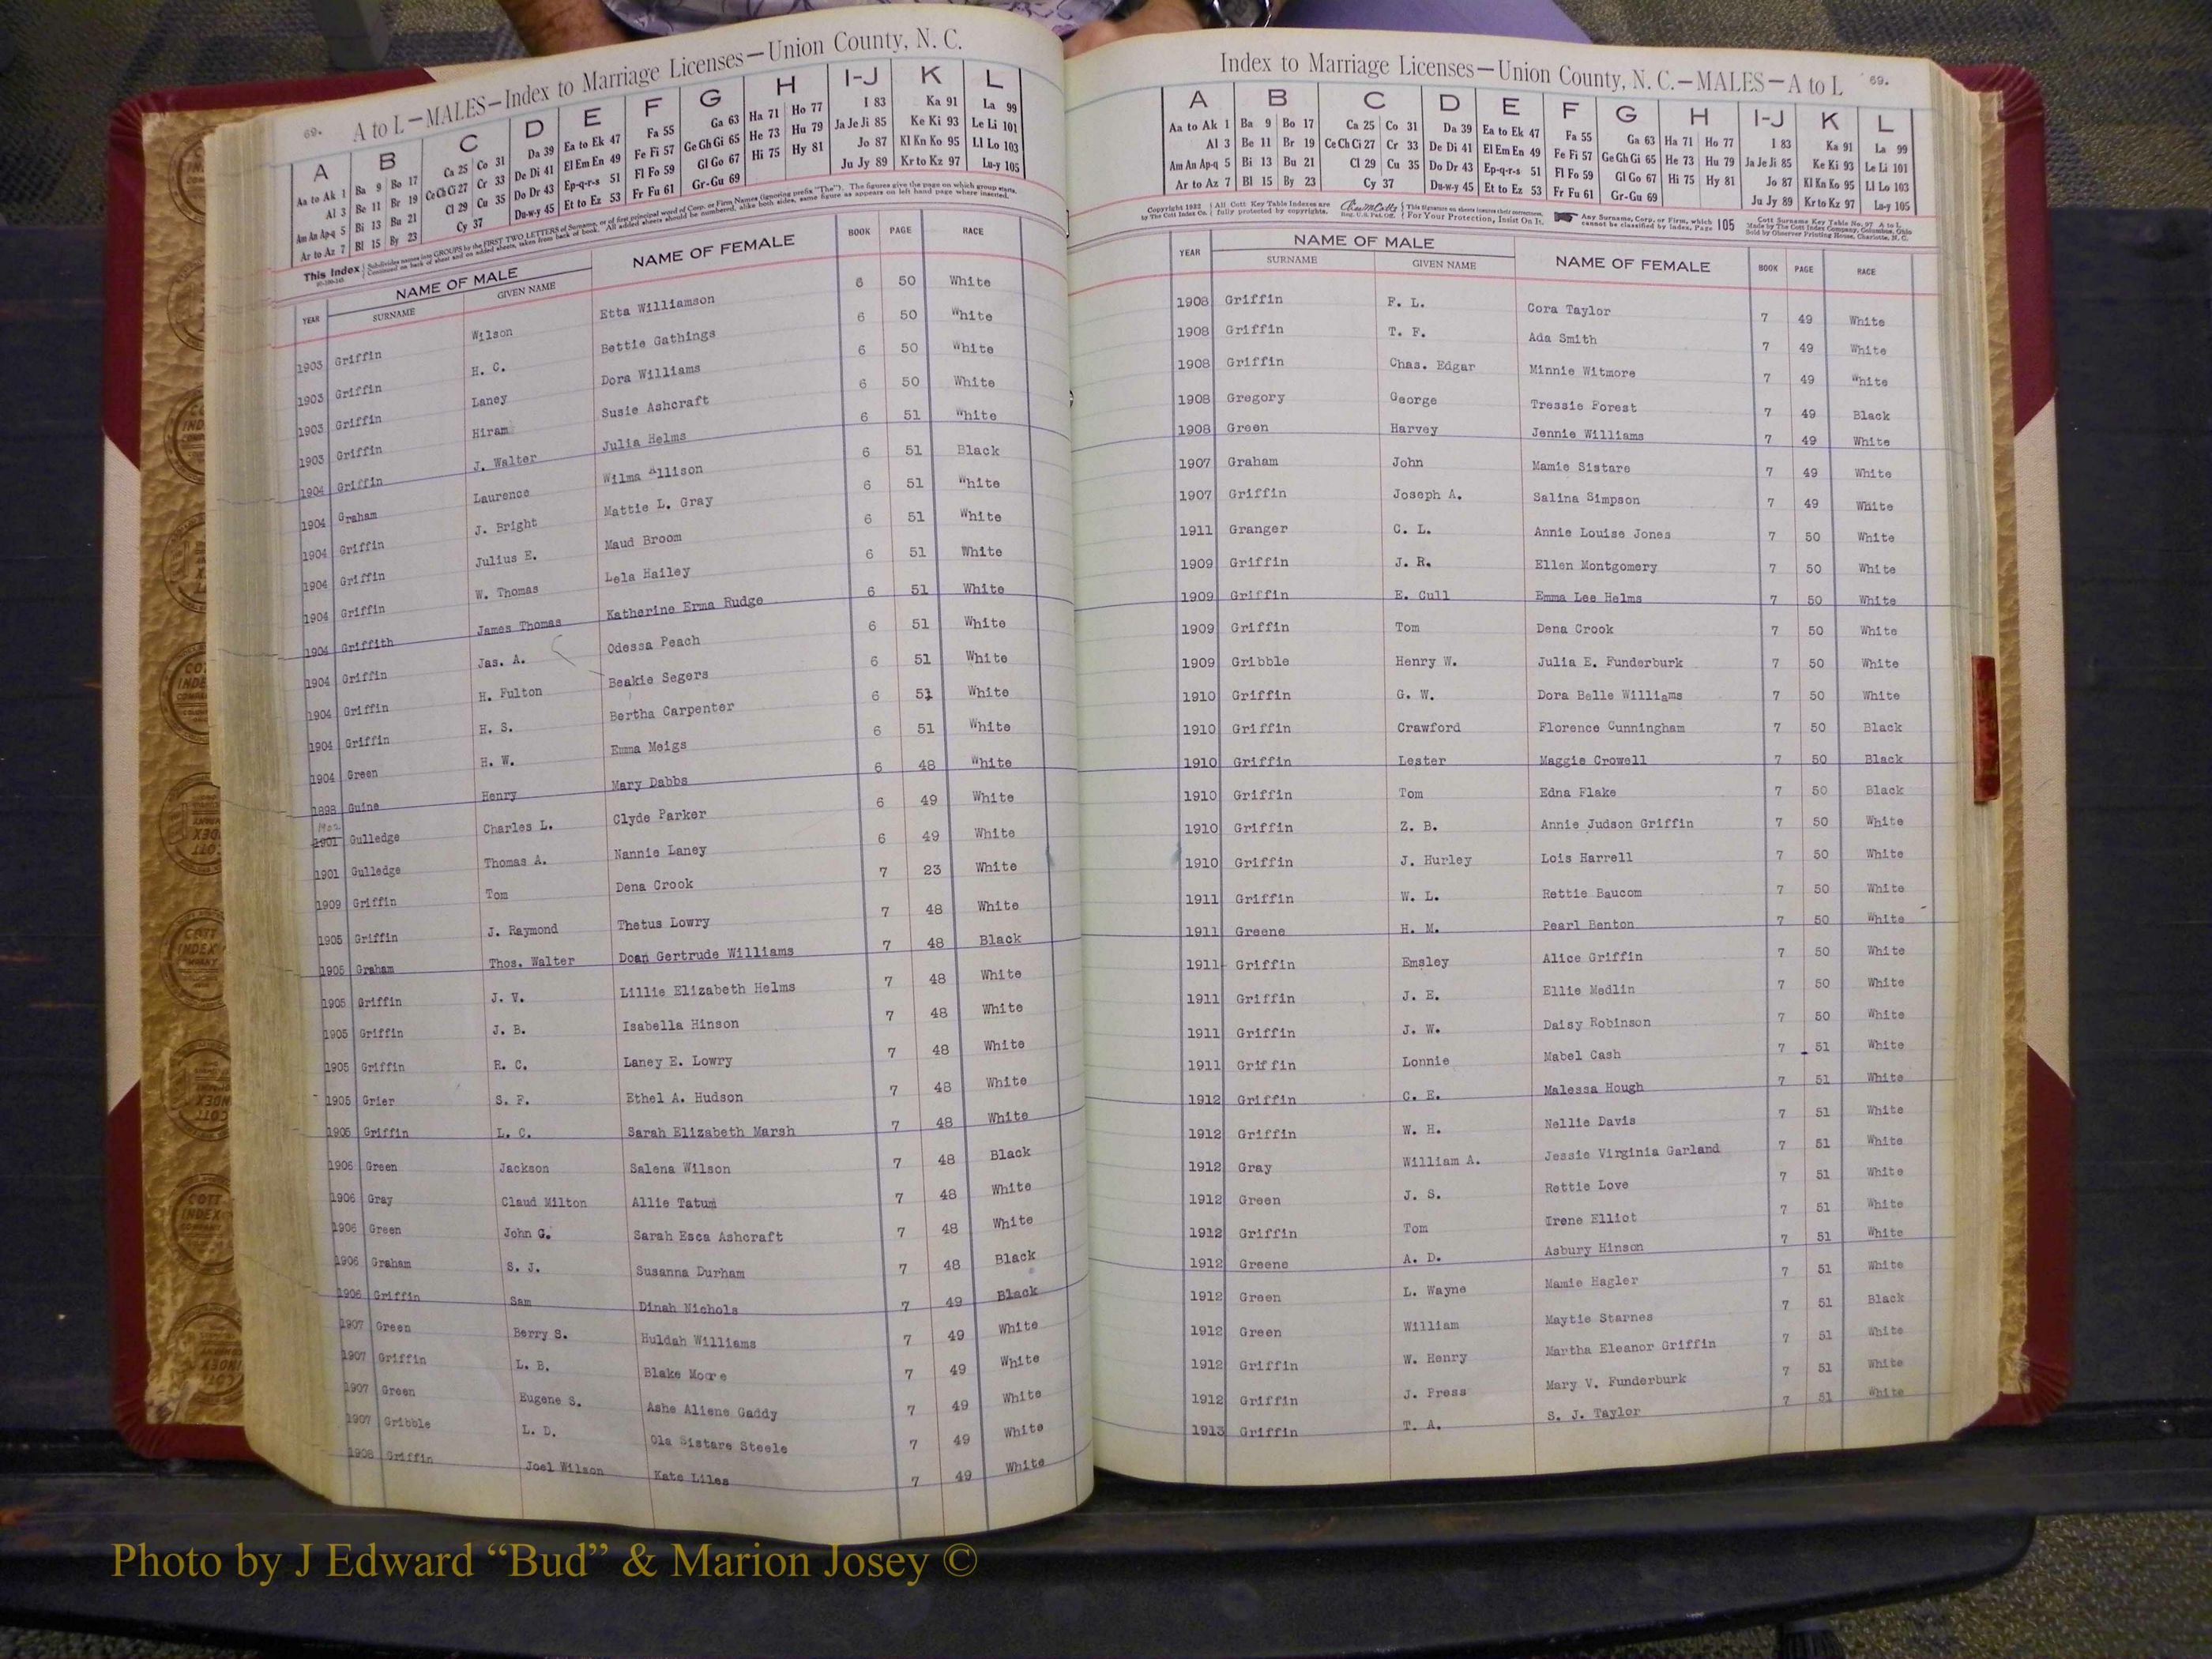 69. A to L—MALES—Index to Marriage Licenses—Union County, N. C.
A B C D E F G H I-J K L
Aa to Ak 1 Ba 9 Bo 17 Ca 25 Co 31 Da 39 Ea to Ek 47 Fa 55 Ga 63 Ha 71 Ho 77 I 83 Ka 91 La 99
Al 3 Be 11 Br 19 Ce Ch Ci 27 Cr 33 De Di 41 El Em En 49 Fe Fi 57 Ge Gh Gi 65 He 73 Hu 79 Ja Je Ji 85 Ke Ki 93 Le Li 101
Am An Ap-q 5 Bi 13 Bu 21 Cl 29 Cu 35 Do Dr 43 Ep-q-r-s 51 Fl Fo 59 Gl Go 67 Hi 75 Hy 81 Jo 87 Kl Kn Ko 95 Ll Lo 103
Ar to Az 7 Bl 15 By 23 Cy 37 Du-w-y 45 Et to Ez 53 Fr Fu 61 Gr-Gu 69 Ju Jy 89 Kr to Kz 97 Lu-y 105
This Index Subdivides names into GROUPS by the FIRST TWO LETTERS of Surname, or of first principal word of Corp. or Firm Names (ignoring prefix "The"). The figures give the page on which group starts.
Continued on back of sheet and on added sheets, taken from back of book. All added sheets should be numbered, alike both sides, same figure as appears on left hand page where inserted.
YEAR NAME OF MALE SURNAME GIVEN NAME NAME OF FEMALE BOOK PAGE RACE
1903 Griffin Wilson Etta Williamson 6 50 White
1903 Griffin H. C. Bettie Gathings 6 50 White
1903 Griffin Laney Dora Williams 6 50 White
1903 Griffin Hiram Susie Ashcraft 6 50 White
1904 Griffin J. Walter Julia Helms 6 51 White
1904 Graham Laurence Wilma Allison 6 51 Black
1904 Griffin J. Bright Mattie L. Gray 6 51 White
1904 Griffin Julius E. Maud Broom 6 51 White
1904 Griffin W. Thomas Lela Hailey 6 51 White
1904 Griffith James Thomas Katherine Erma Rudge 6 51 White
1904 Griffin Jas. A. Odessa Peach 6 51 White
1904 Griffin H. Fulton Beakie Segers 6 51 White
1904 Griffin H. S. Bertha Carpenter 6 51 White
1904 Green H. W. Emma Meigs 6 51 White
1898 Guine Henry Mary Dabbs 6 48 White
1902
1901 Gulledge Charles L. Clyde Parker 6 49 White
1901 Gulledge Thomas A. Nannie Laney 6 49 White
1909 Griffin Tom Dena Crook 7 23 White
1905 Griffin J. Raymond Thetus Lowry 7 48 White
1905 Graham Thos. Walter Doan Gertrude Williams 7 48 Black
1905 Griffin J. V. Lillie Elizabeth Helms 7 48 White
1905 Griffin J. B. Isabella Hinson 7 48 White
1905 Griffin R. C. Laney E. Lowry 7 48 White
1905 Grier S. F. Ethel A. Hudson 7 48 White
1906 Griffin L. C. Sarah Elizabeth Marsh 7 48 White
1906 Green Jackson Salena Wilson 7 48 Black
1906 Gray Claud Milton Allie Tatum 7 48 White
1906 Green John G. Sarah Esca Ashcraft 7 48 White
1906 Graham S. J. Susanna Durham 7 48 Black
1906 Griffin Sam Dinah Nichols 7 49 Black
1907 Green Berry S. Huldah Williams 7 49 White
1907 Griffin L. B. Blake Moore 7 49 White
1907 Green Eugene S. Ashe Aliene Gaddy 7 49 White
1907 Gribble L. D. Ola Sistare Steele 7 49 White
1908 Griffin Joel Wilson Kate Liles 7 49 White
Index to Marriage Licenses—Union County, N. C.—MALES—A to L 69.
A B C D E F G H I-J K L
Aa to Ak 1 Ba 9 Bo 17 Ca 25 Co 31 Da 39 Ea to Ek 47 Fa 55 Ga 63 Ha 71 Ho 77 I 83 Ka 91 La 99
Al 3 Be 11 Br 19 Ce Ch Ci 27 Cr 33 De Di 41 El Em En 49 Fe Fi 57 Ge Gh Gi 65 He 73 Hu 79 Ja Je Ji 85 Ke Ki 93 Le Li 101
Am An Ap-q 5 Bi 13 Bu 21 Cl 29 Cu 35 Do Dr 43 Ep-q-r-s 51 Fl Fo 59 Gl Go 67 Hi 75 Hy 81 Jo 87 Kl Kn Ko 95 Ll Lo 103
Ar to Az 7 Bl 15 By 23 Cy 37 Du-w-y 45 Et to Ez 53 Fr Fu 61 Gr-Gu 69 Ju Jy 89 Kr to Kz 97 La-y 105
Copyright 1932 by The Cott Index Co. All Cott Key Table Indexes are fully protected by copyrights. Reg. U.S. Pat. Off. This signature on sheets insures their correctness. For Your Protection, Insist On It. Any Surname, Corp. or Firm, which cannot be classified by Index, Page 105 Cott Surname Key Table No. 97 A to L Made by The Cott Index Company, Columbus, Ohio Sold by Observer Printing House, Charlotte, N. C.
YEAR NAME OF MALE SURNAME GIVEN NAME NAME OF FEMALE BOOK PAGE RACE
1908 Griffin F. L. Cora Taylor 7 49 White
1908 Griffin T. F. Ada Smith 7 49 White
1908 Griffin Chas. Edgar Minnie Witmore 7 49 White
1908 Gregory George Tressie Forest 7 49 Black
1908 Green Harvey Jennie Williams 7 49 White
1907 Graham John Mamie Sistare 7 49 White
1907 Griffin Joseph A. Salina Simpson 7 49 White
1911 Granger C. L. Annie Louise Jones 7 50 White
1909 Griffin J. R. Ellen Montgomery 7 50 White
1909 Griffin E. Cull Emma Lee Helms 7 50 White
1909 Griffin Tom Dena Crook 7 50 White
1909 Gribble Henry W. Julia E. Funderburk 7 50 White
1910 Griffin G. W. Dora Belle Williams 7 50 White
1910 Griffin Crawford Florence Cunningham 7 50 Black
1910 Griffin Lester Maggie Crowell 7 50 Black
1910 Griffin Tom Edna Flake 7 50 Black
1910 Griffin Z. B. Annie Judson Griffin 7 50 White
1910 Griffin J. Hurley Lois Harrell 7 50 White
1911 Griffin W. L. Rettie Baucom 7 50 White
1911 Greene H. M. Pearl Benton 7 50 White
1911 Griffin Emsley Alice Griffin 7 50 White
1911 Griffin J. E. Ellie Medlin 7 50 White
1911 Griffin J. W. Daisy Robinson 7 50 White
1911 Griffin Lonnie Mabel Cash 7 51 White
1912 Griffin C. E. Malessa Hough 7 51 White
1912 Griffin W. H. Nellie Davis 7 51 White
1912 Gray William A. Jessie Virginia Garland 7 51 White
1912 Green J. S. Rettie Love 7 51 White
1912 Griffin Tom Irene Elliot 7 51 White
1912 Greene A. D. Asbury Hinson 7 51 White
1912 Green L. Wayne Mamie Hagler 7 51 White
1912 Green William Maytie Starnes 7 51 Black
1912 Griffin W. Henry Martha Eleanor Griffin 7 51 White
1912 Griffin J. Press Mary V. Funderburk 7 51 White
1913 Griffin T. A. S. J. Taylor 7 51 White
Photo by J Edward “Bud” & Marion Josey ©